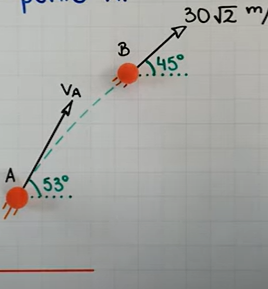 30√2 m/
B
45°
V_A
A
53°